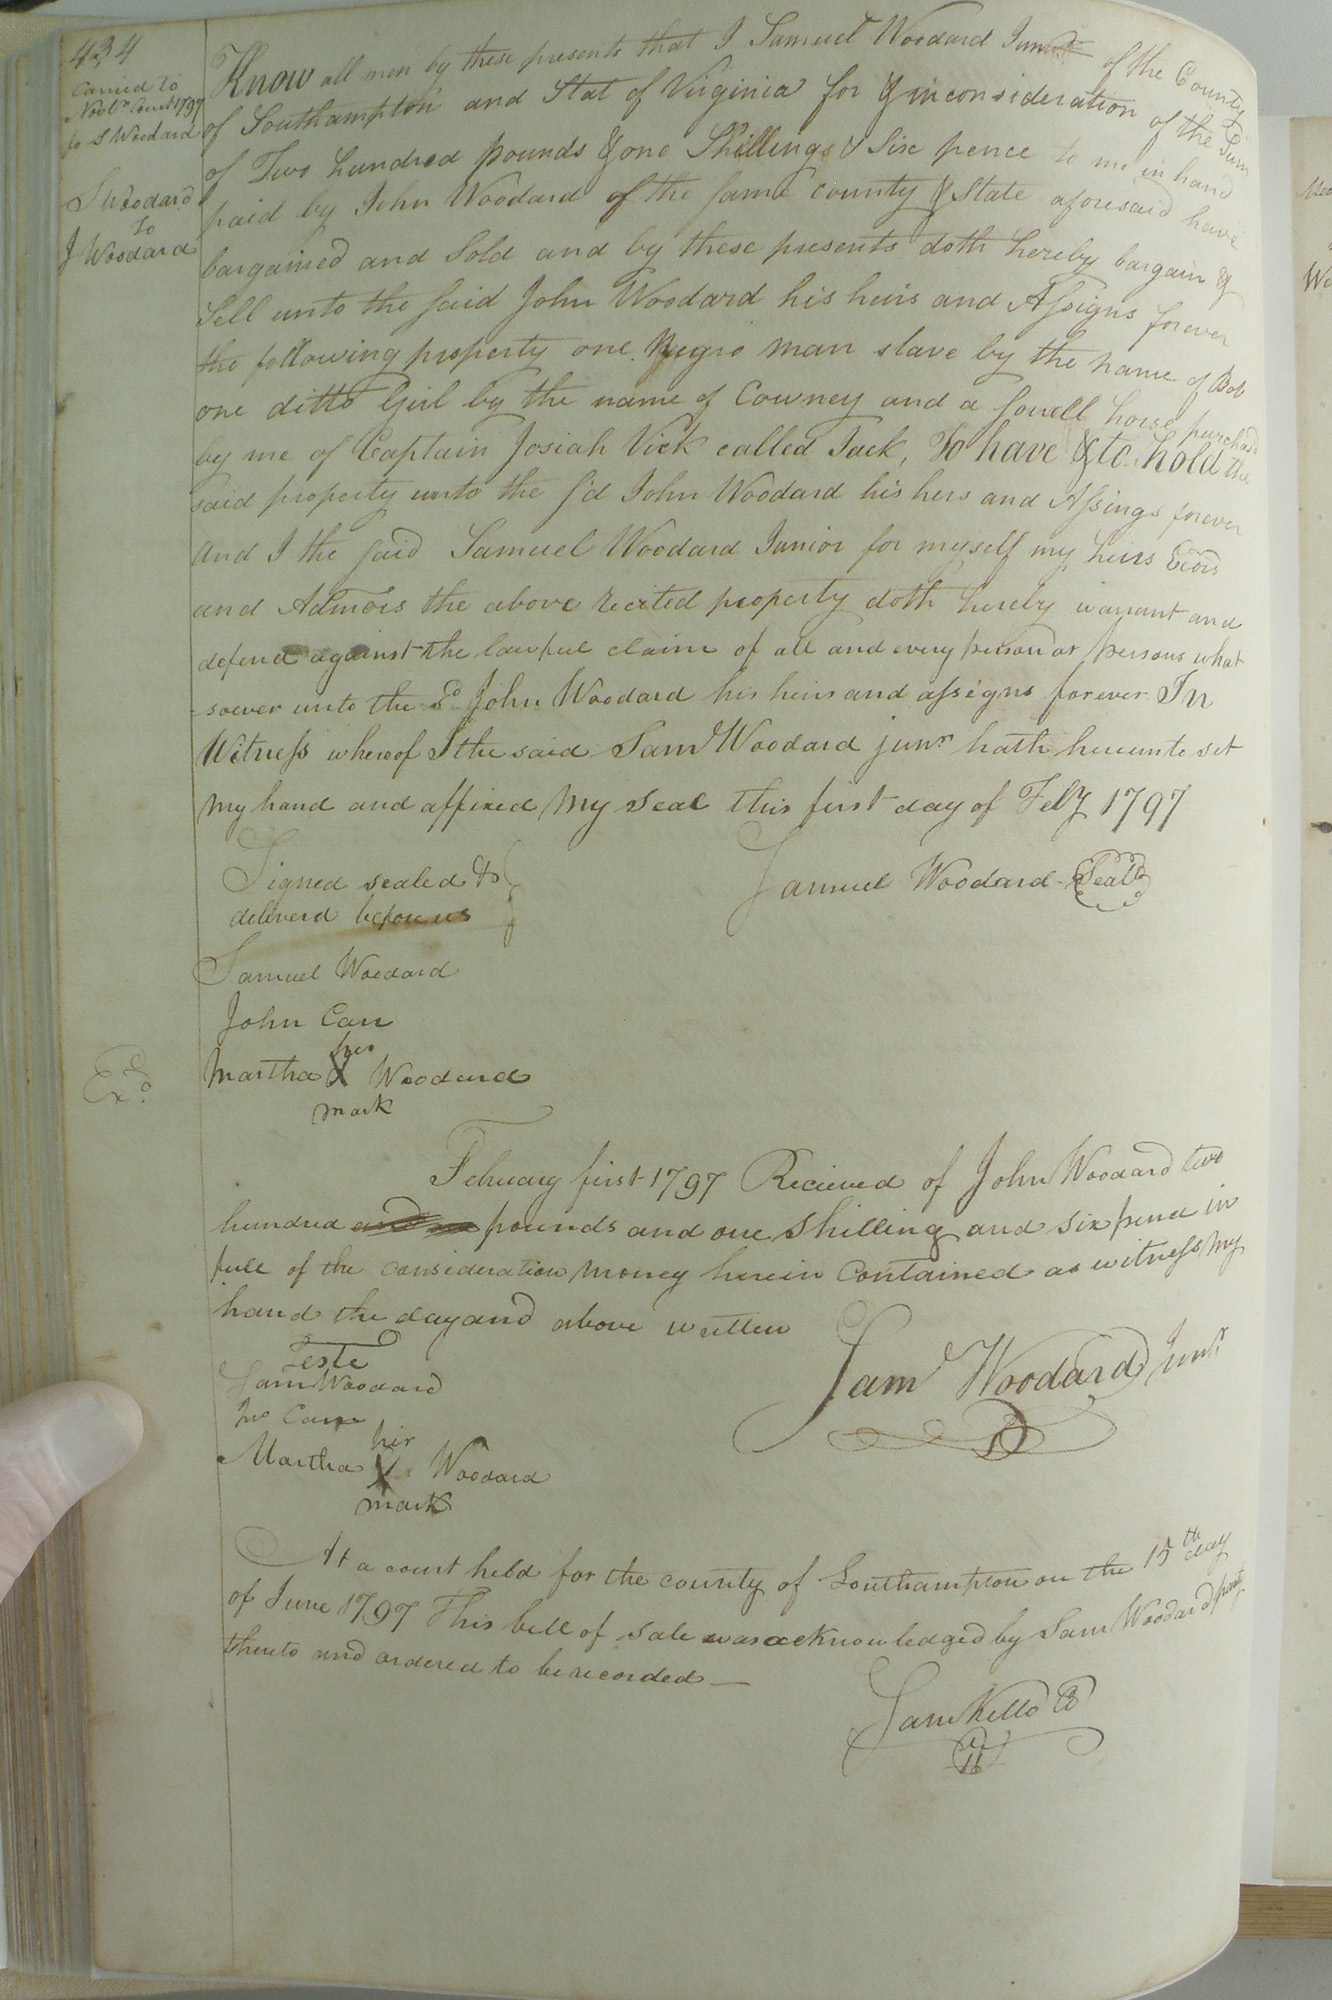 434
Carried to
Novbr Court 1797
pr S Woodard
S Woodard
to
J Woodard
Know all men by these presents that I Samuel Woodard Junior of the County
of Southampton and Stat of Virginia for & in consideration of the Sum
of Two hundred pounds & one Shillings & Six pence to me in hand
paid by John Woodard of the same county & State aforesaid have
bargained and Sold and by these presents doth hereby bargain &
Sell unto the said John Woodard his heirs and Assigns forever
the following property one Negro man slave by the name of Bob
one ditto Girl by the name of Cowney and a sorell horse purchasd
by me of Captain Josiah Vick called Jack, To have & to hold the
said property unto the s'd John Woodard his hers and Assings forever
And I the said Samuel Woodard Junior for myself my heirs Exors
and Admors the above recited property doth hereby warrant and
defend against the lawful claim of all and every person or persons what
soever unto the sd John Woodard his heirs and assigns forever In
Witness whereof I the said Saml Woodard junr hath hereunto set
my hand and affixed my seal this first day of Feby 1797
Signed sealed &
deliverd before us
Samuel Woodard Seal
Samuel Woodard
John Carr
her
Martha X Woodard
mark
Exd
February first 1797 Recieved of John Woodard two
hundred pounds and one shilling and six pence in
full of the consideration money herein contained as witness my
hand the day and above written
Teste
Sam Woodard
Jno Carr
her
Martha X Woodard
mark
Saml Woodard Junr
At a court held for the county of Southampton on the 15th day
of June 1797 This bill of sale was acknowledged by Sam Woodard party
thereto and ordered to be recorded —
Sam Kello C